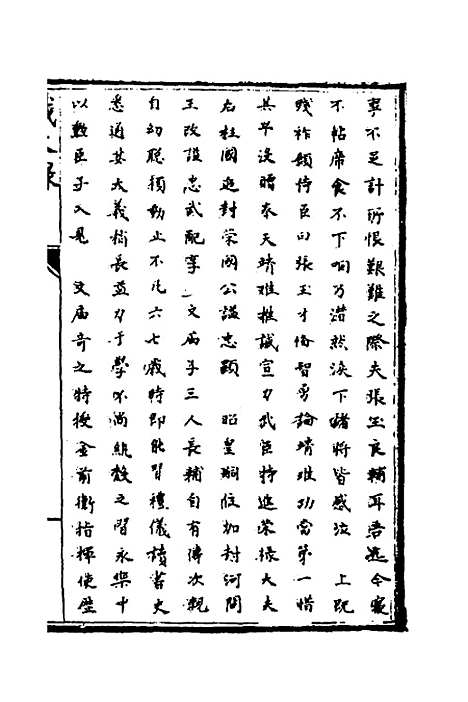 寧不足計所恨艱難之際失張玉良輔耳吾迄今寢
不帖席食不下咽乃潸然淚下諸將皆感泣　上既
踐祚顧侍臣曰張玉才俻智勇論靖难功當第一惜
其早没贈奉天靖难推誠宣力武臣特進荣禄大夫
右柱國追封荣國公諡忠顯　昭皇嗣位加封河間
王改諡忠武配享　文庙子三人長輔自有傳次輗
自幼聪頴動止不凡六七歳時即能習禮儀讀書史
悉通其大義稍長益力于學不尚紈袴之習永樂中
以勲臣子入見　文庙竒之特授金吾前衛指揮使歴